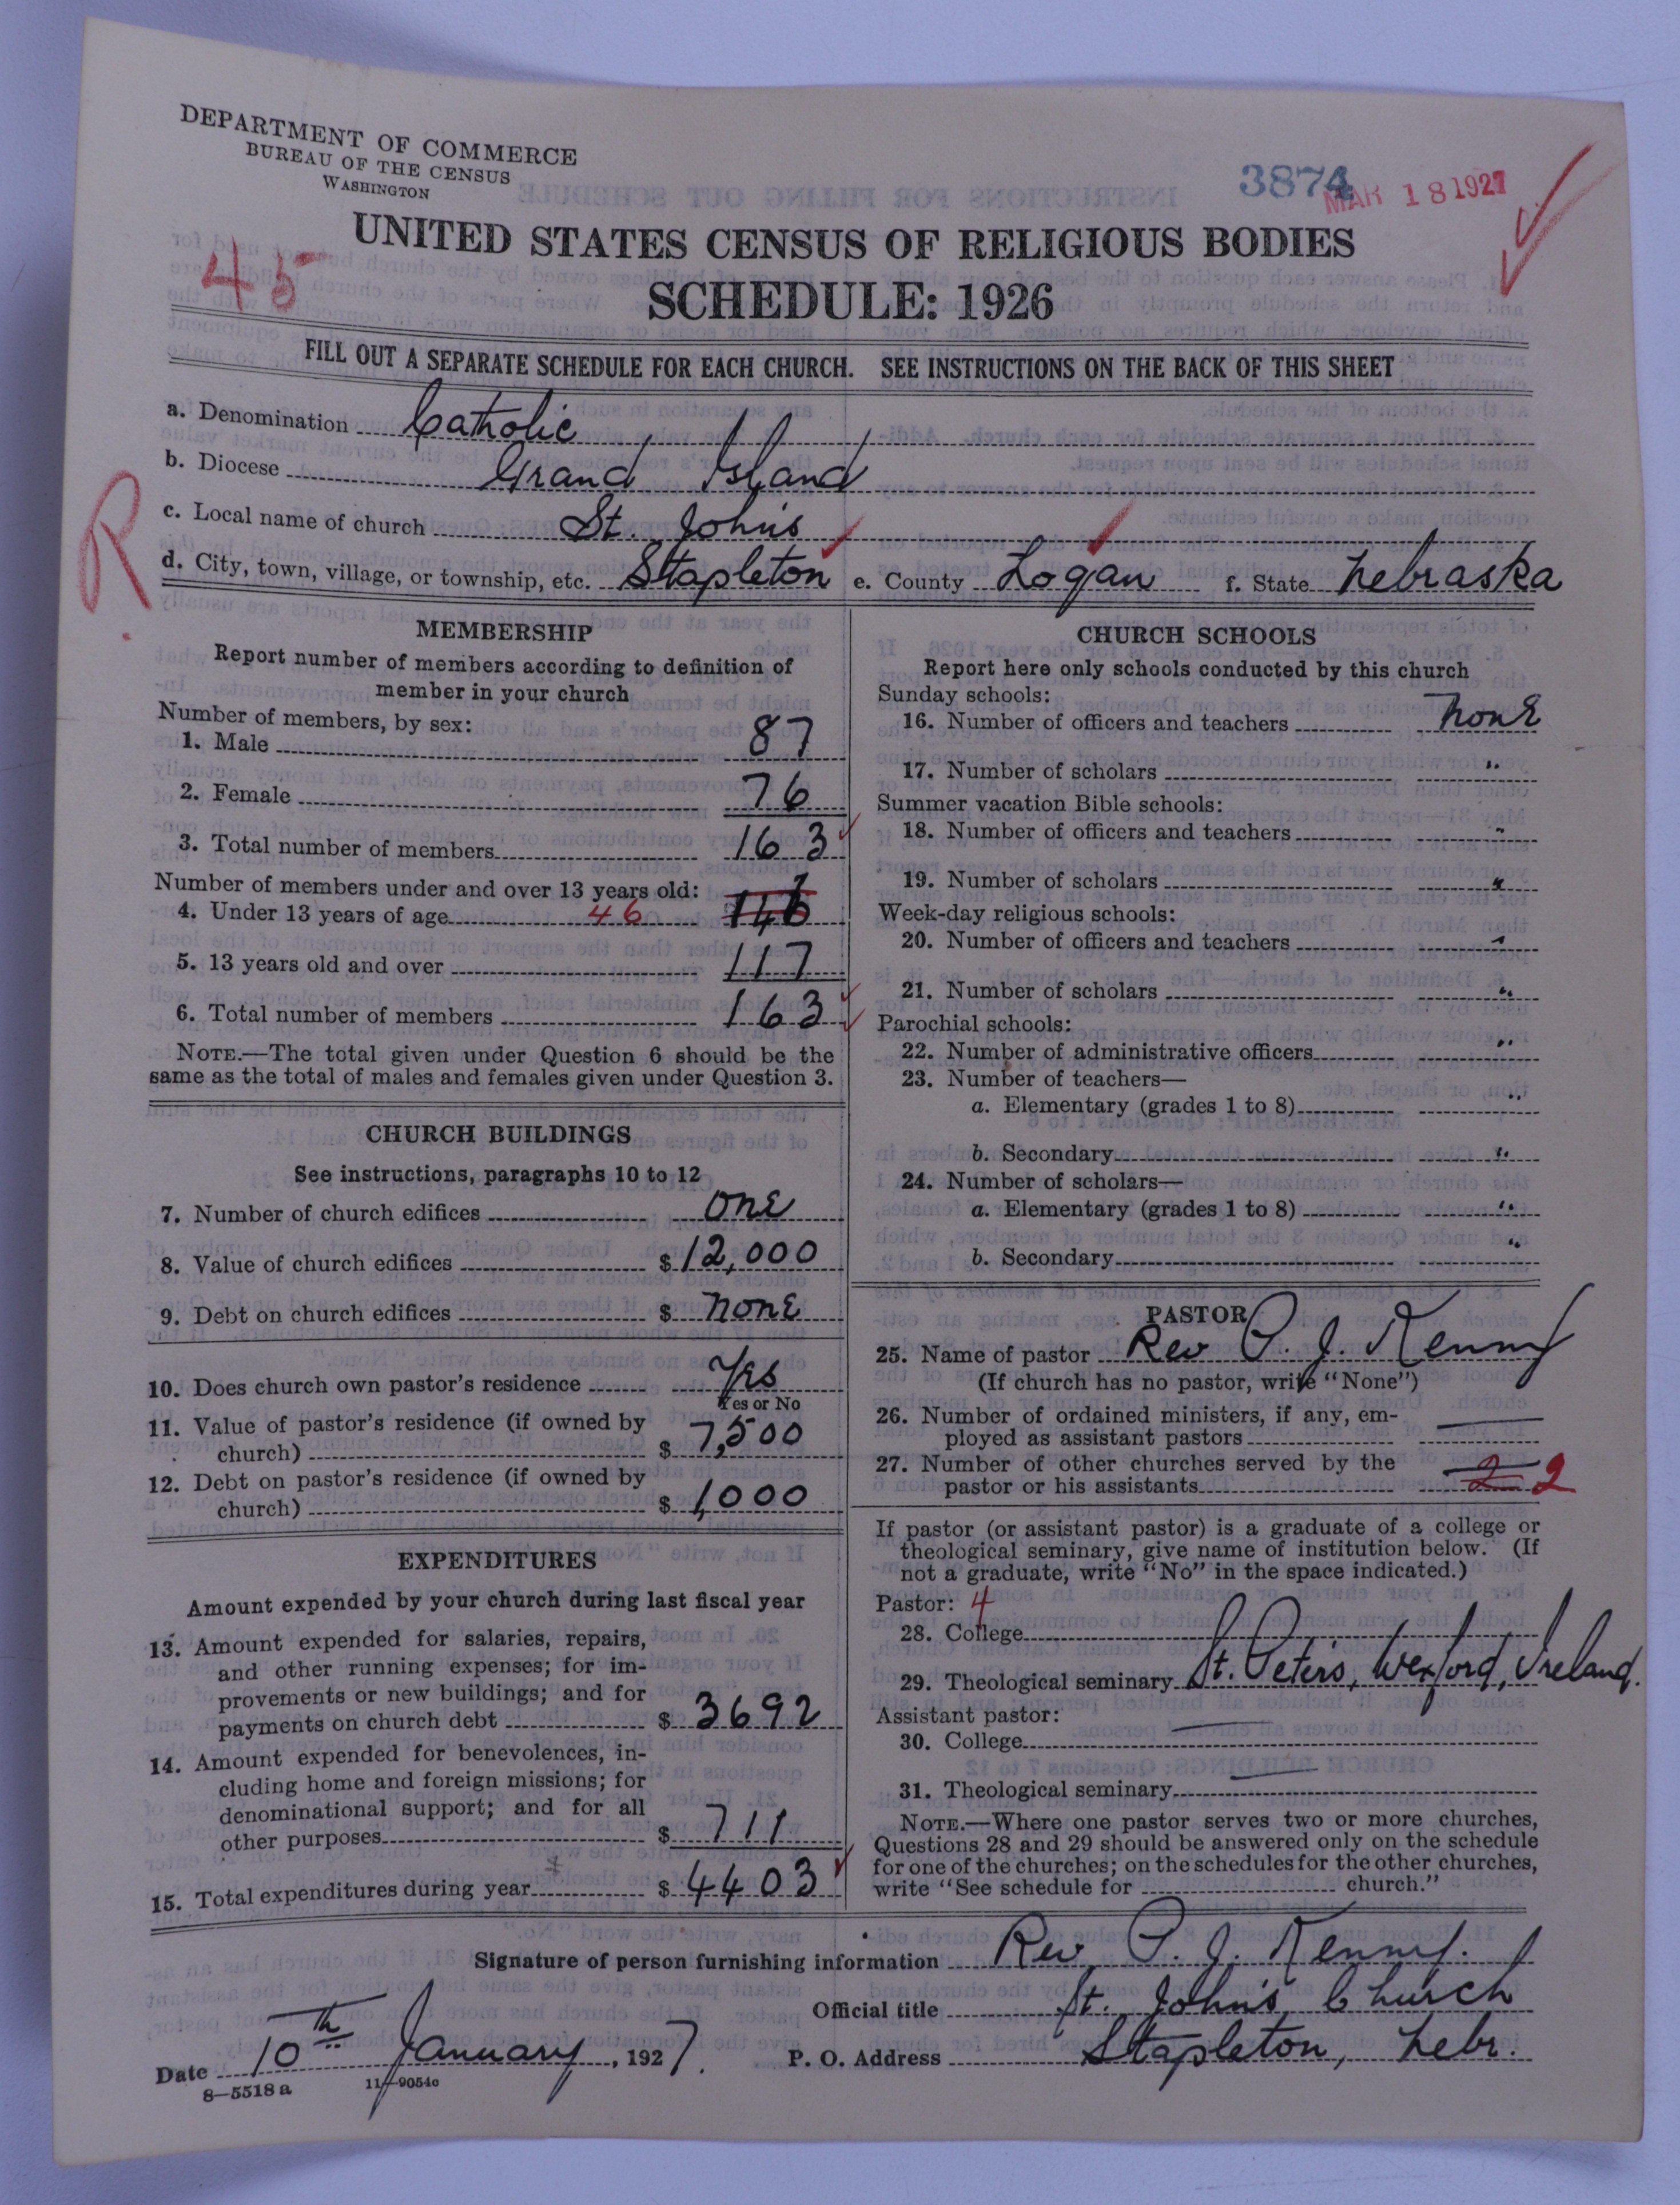 DEPARTMENT OF COMMERCE
BUREAU OF THE CENSUS
WASHINGTON
3874
MAR 18 1927
UNITED STATES CENSUS OF RELIGIOUS BODIES
45
SCHEDULE: 1926
FILL OUT A SEPARATE SCHEDULE FOR EACH CHURCH. SEE INSTRUCTIONS ON THE BACK OF THIS SHEET
a. Denomination Catholic
b. Diocese Grand Island
R
c. Local name of church St. John's
d. City, town, village, or township, etc. Stapleton e. County Logan f. State Nebraska
MEMBERSHIP
Report number of members according to definition of
member in your church
Number of members, by sex:
1. Male 87
2. Female 76
3. Total number of members 163
Number of members under and over 13 years old:
4. Under 13 years of age 46
5. 13 years old and over 117
6. Total number of members 163
NOTE.—The total given under Question 6 should be the
same as the total of males and females given under Question 3.
CHURCH BUILDINGS
See instructions, paragraphs 10 to 12
7. Number of church edifices one
8. Value of church edifices $ 12,000
9. Debt on church edifices $ none
10. Does church own pastor's residence Yes
Yes or No
11. Value of pastor's residence (if owned by
church) $ 7,500
12. Debt on pastor's residence (if owned by
church) $ 1,000
EXPENDITURES
Amount expended by your church during last fiscal year
13. Amount expended for salaries, repairs,
and other running expenses; for im-
provements or new buildings; and for
payments on church debt $ 3692
14. Amount expended for benevolences, in-
cluding home and foreign missions; for
denominational support; and for all
other purposes $ 711
15. Total expenditures during year $ 4403
CHURCH SCHOOLS
Report here only schools conducted by this church
Sunday schools:
16. Number of officers and teachers none
17. Number of scholars "
Summer vacation Bible schools:
18. Number of officers and teachers "
19. Number of scholars "
Week-day religious schools:
20. Number of officers and teachers "
21. Number of scholars "
Parochial schools:
22. Number of administrative officers "
23. Number of teachers—
a. Elementary (grades 1 to 8) "
b. Secondary "
24. Number of scholars—
a. Elementary (grades 1 to 8) "
b. Secondary "
PASTOR
25. Name of pastor Rev P. J. Kenny
(If church has no pastor, write "None")
26. Number of ordained ministers, if any, em-
ployed as assistant pastors —
27. Number of other churches served by the
pastor or his assistants 2 2
If pastor (or assistant pastor) is a graduate of a college or
theological seminary, give name of institution below. (If
not a graduate, write "No" in the space indicated.)
Pastor: 4
28. College
29. Theological seminary St. Peter's, Wexford, Ireland.
Assistant pastor:
30. College —
31. Theological seminary —
NOTE.—Where one pastor serves two or more churches,
Questions 28 and 29 should be answered only on the schedule
for one of the churches; on the schedules for the other churches,
write "See schedule for church."
Signature of person furnishing information Rev P. J. Kenny.
Official title St. John's Church
Date 10th January, 1927. P. O. Address Stapleton, Nebr.
8—5518a 11—9054c